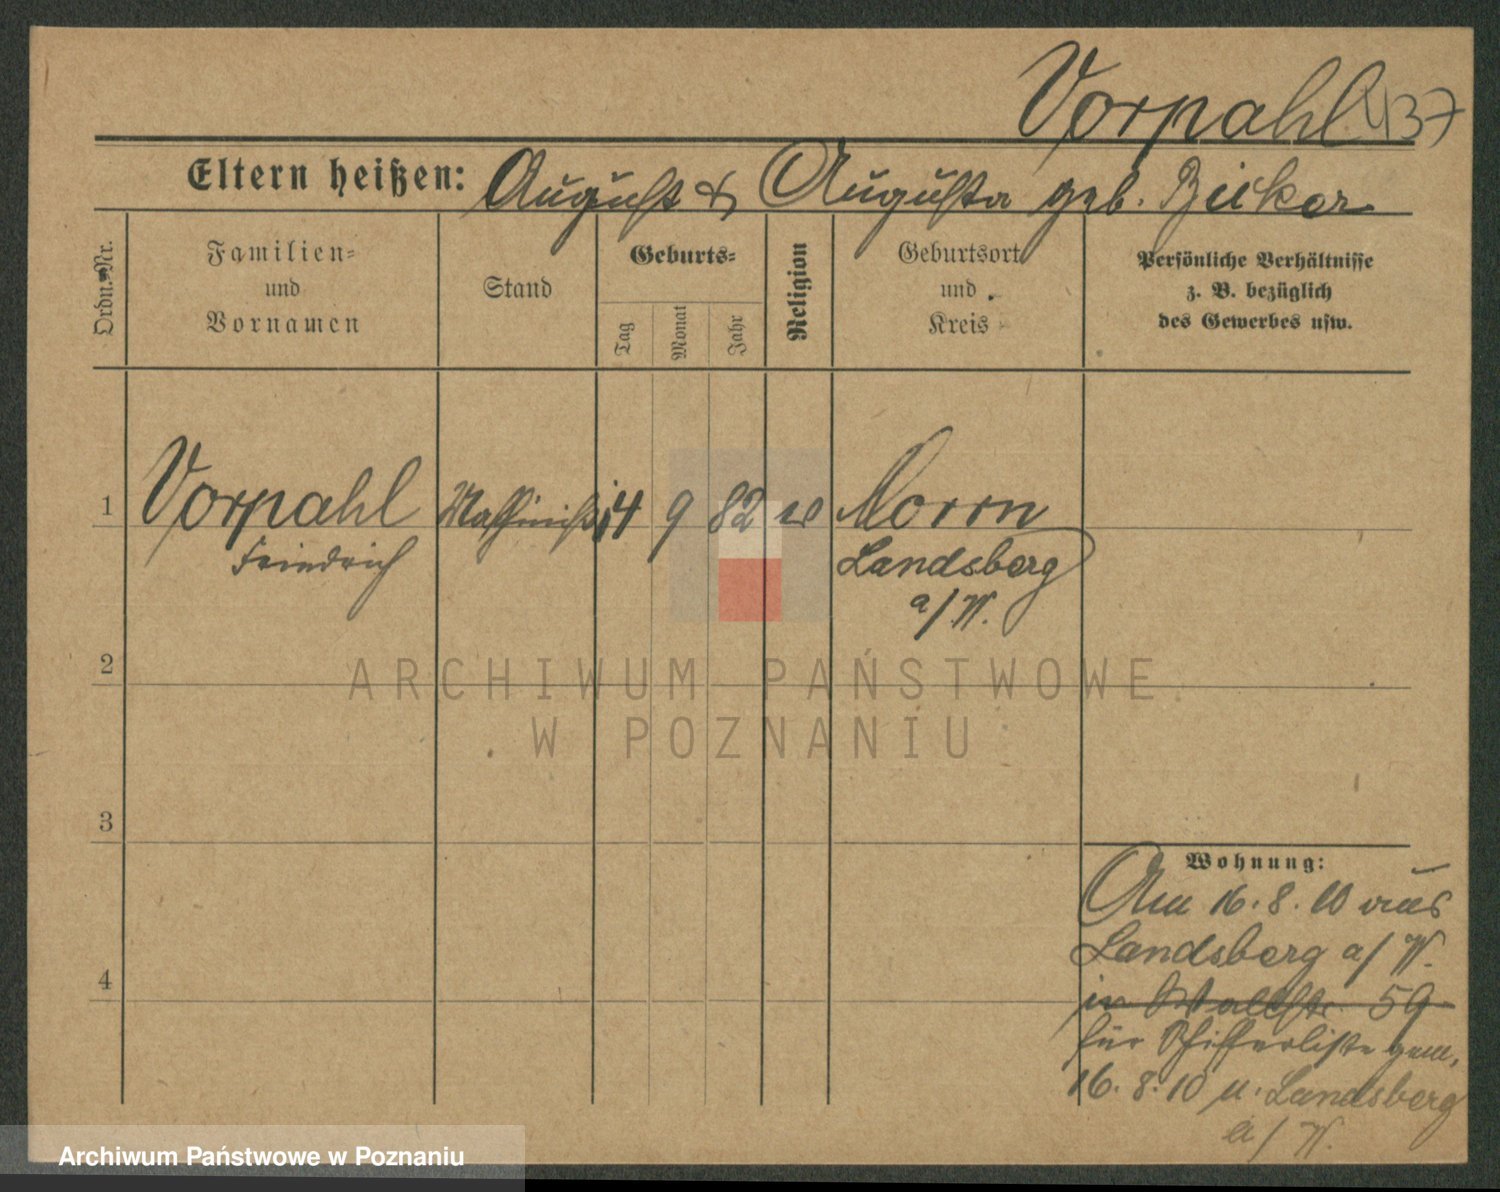 Vorpahl 437
Eltern heißen: August & Augusta geb. Zicker
Ordn.-Nr.
Familien-
und
Vornamen
Stand
Geburts-
Tag
Monat
Jahr
Religion
Geburtsort
und
Kreis
Persönliche Verhältnisse
z. B. bezüglich
des Gewerbes usw.
1 Vorpahl Maschinist 14 9 82 Morrn
Friedrich Landsberg
a/W.
2
3
4
Wohnung:
Am 16.8.10 aus
Landsberg a/W.
in Wallstr. 59
für Schifferliste gem.
16.8.10 n. Landsberg
a/W.
ARCHIWUM PAŃSTWOWE
W POZNANIU
Archiwum Państwowe w Poznaniu